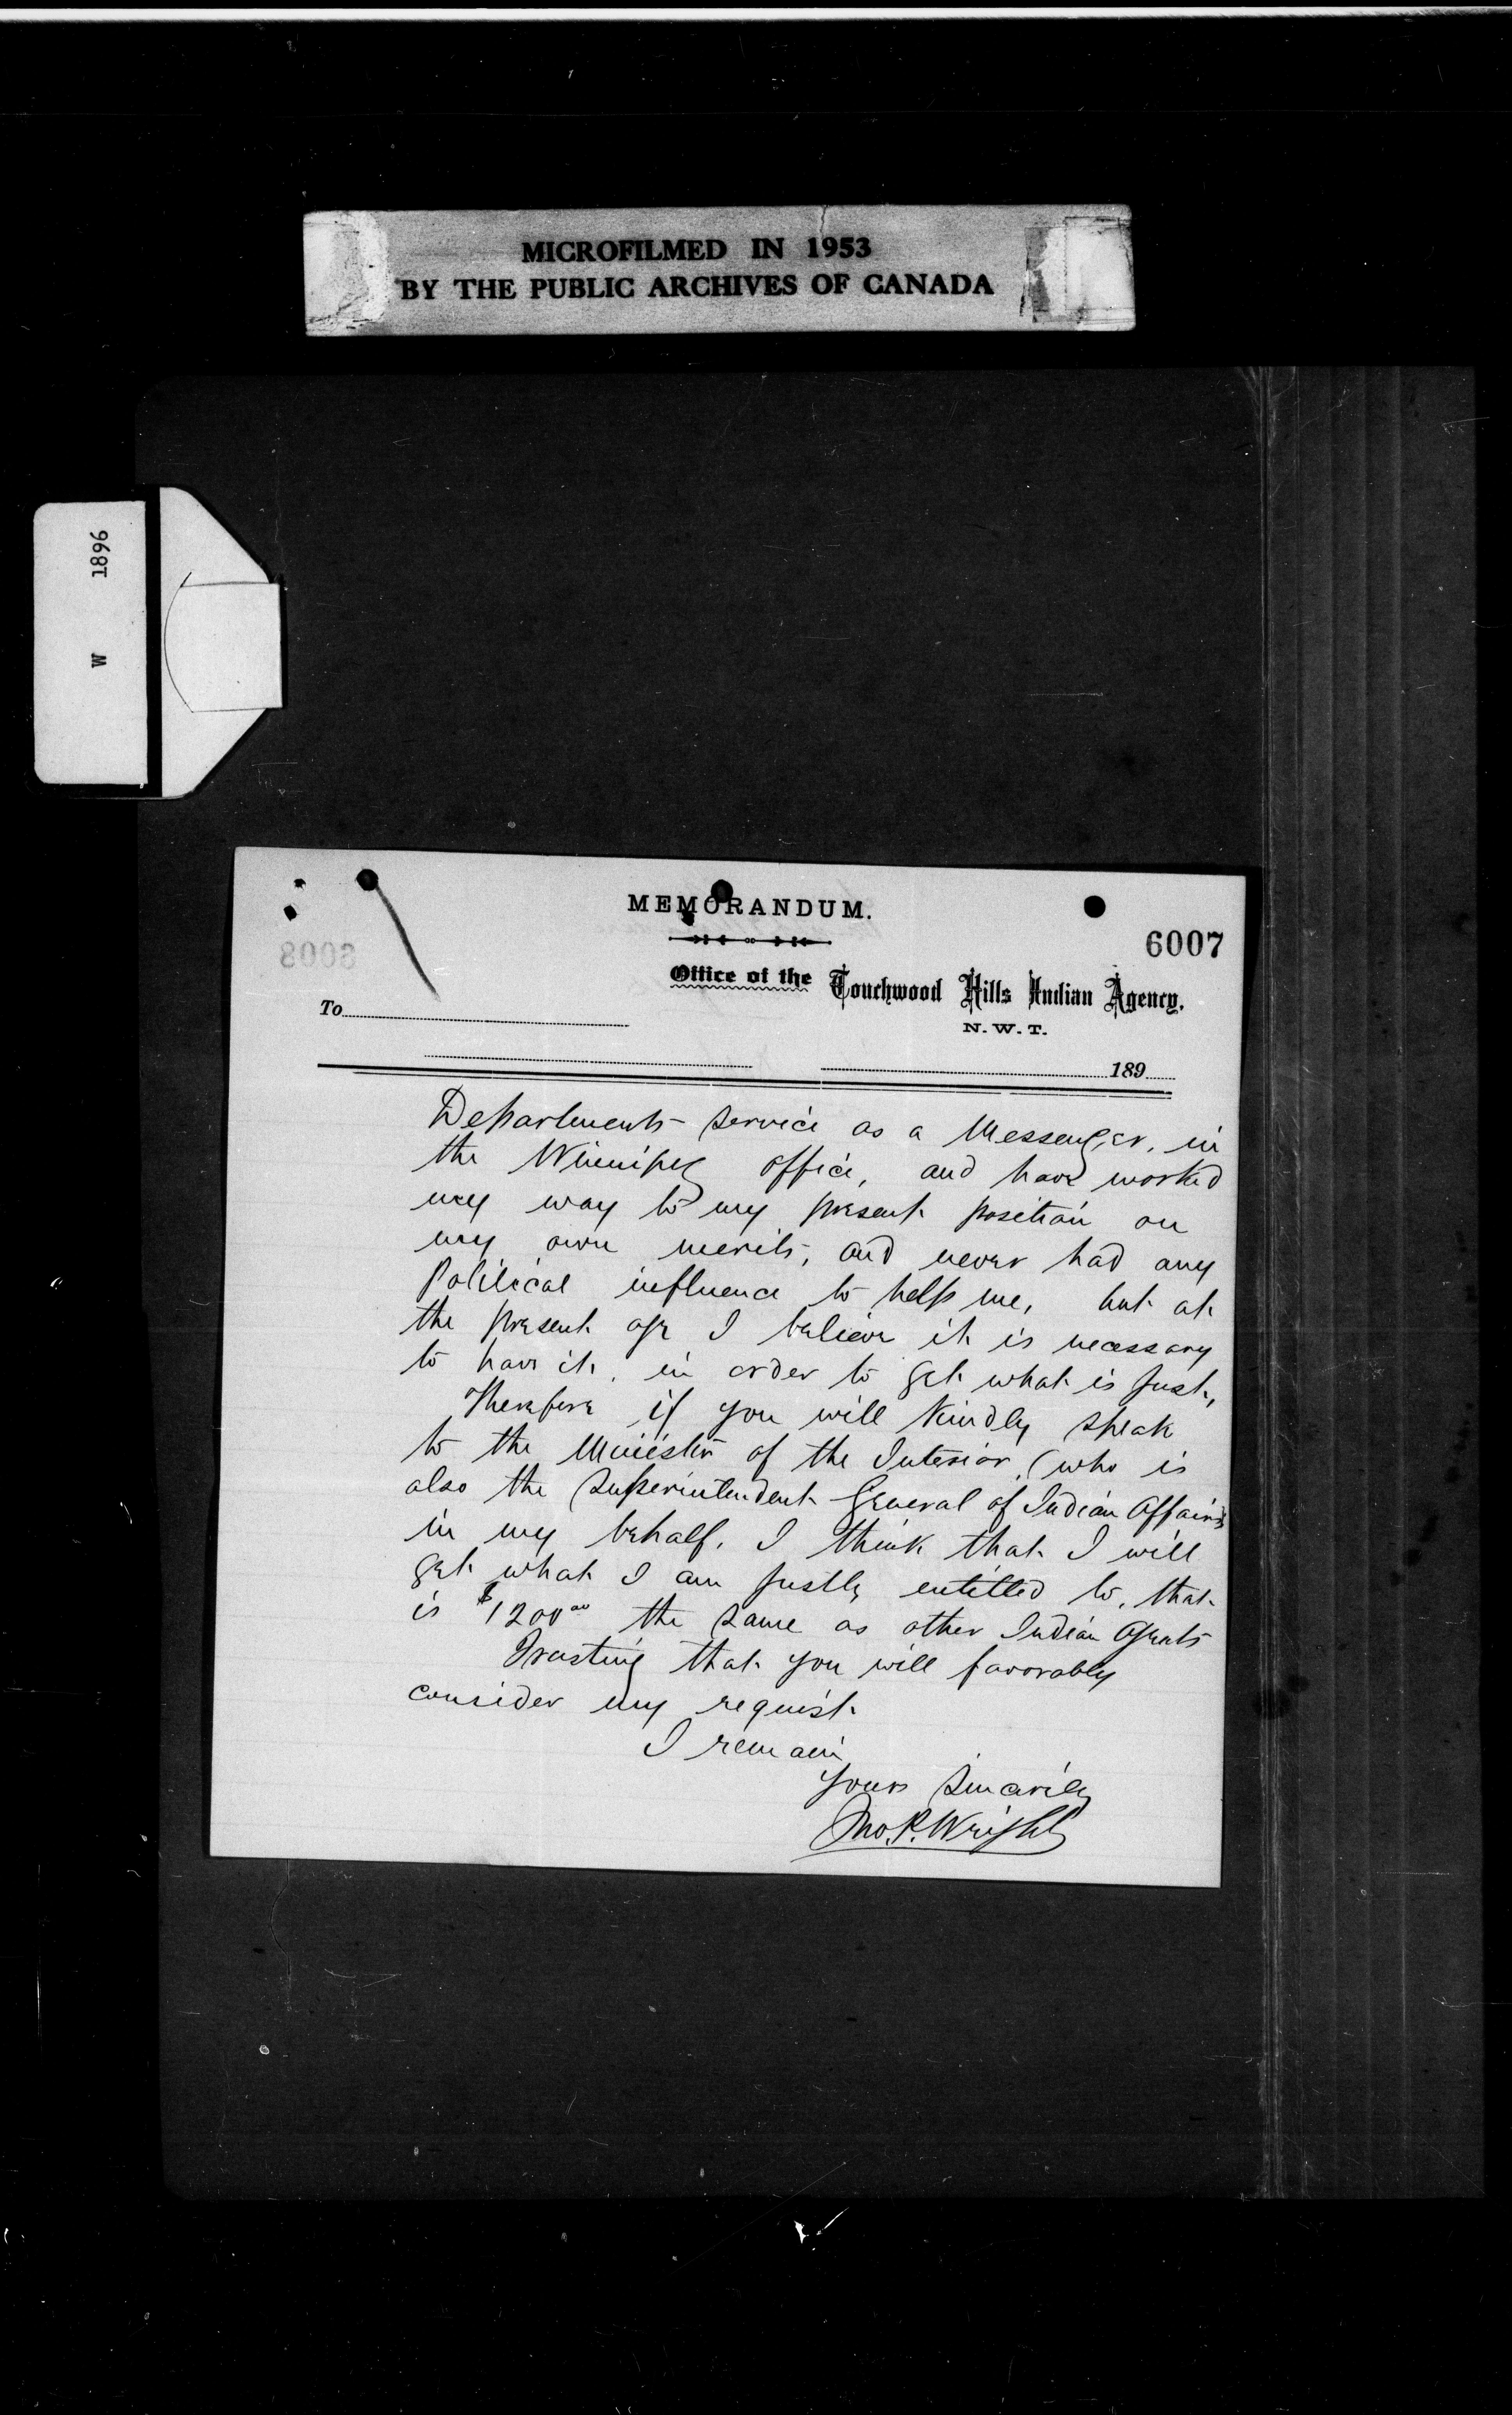 MICROFILMED IN 1953
BY THE PUBLIC ARCHIVES OF CANADA
W 1896
MEMORANDUM.
6007
6008
Office of the Touchwood Hills Indian Agency.
N. W. T.
To
189
Departments service as a Messenger, in
the Winnipeg office, and have worked
my way to my present position on
my own merits, and never had any
Political influence to help me, but at
the present age I believe it is necessary
to have it, in order to get what is just,
Therefore if you will kindly speak
to the Minister of the Interior, (who is
also the Superintendent General of Indian Affairs
in my behalf, I think that I will
get what I am justly entitled to, that
is $1200.00 the same as other Indian Agents
Trusting that you will favorably
consider my request
I remain
Yours Sincerily
Jno. P. Wright